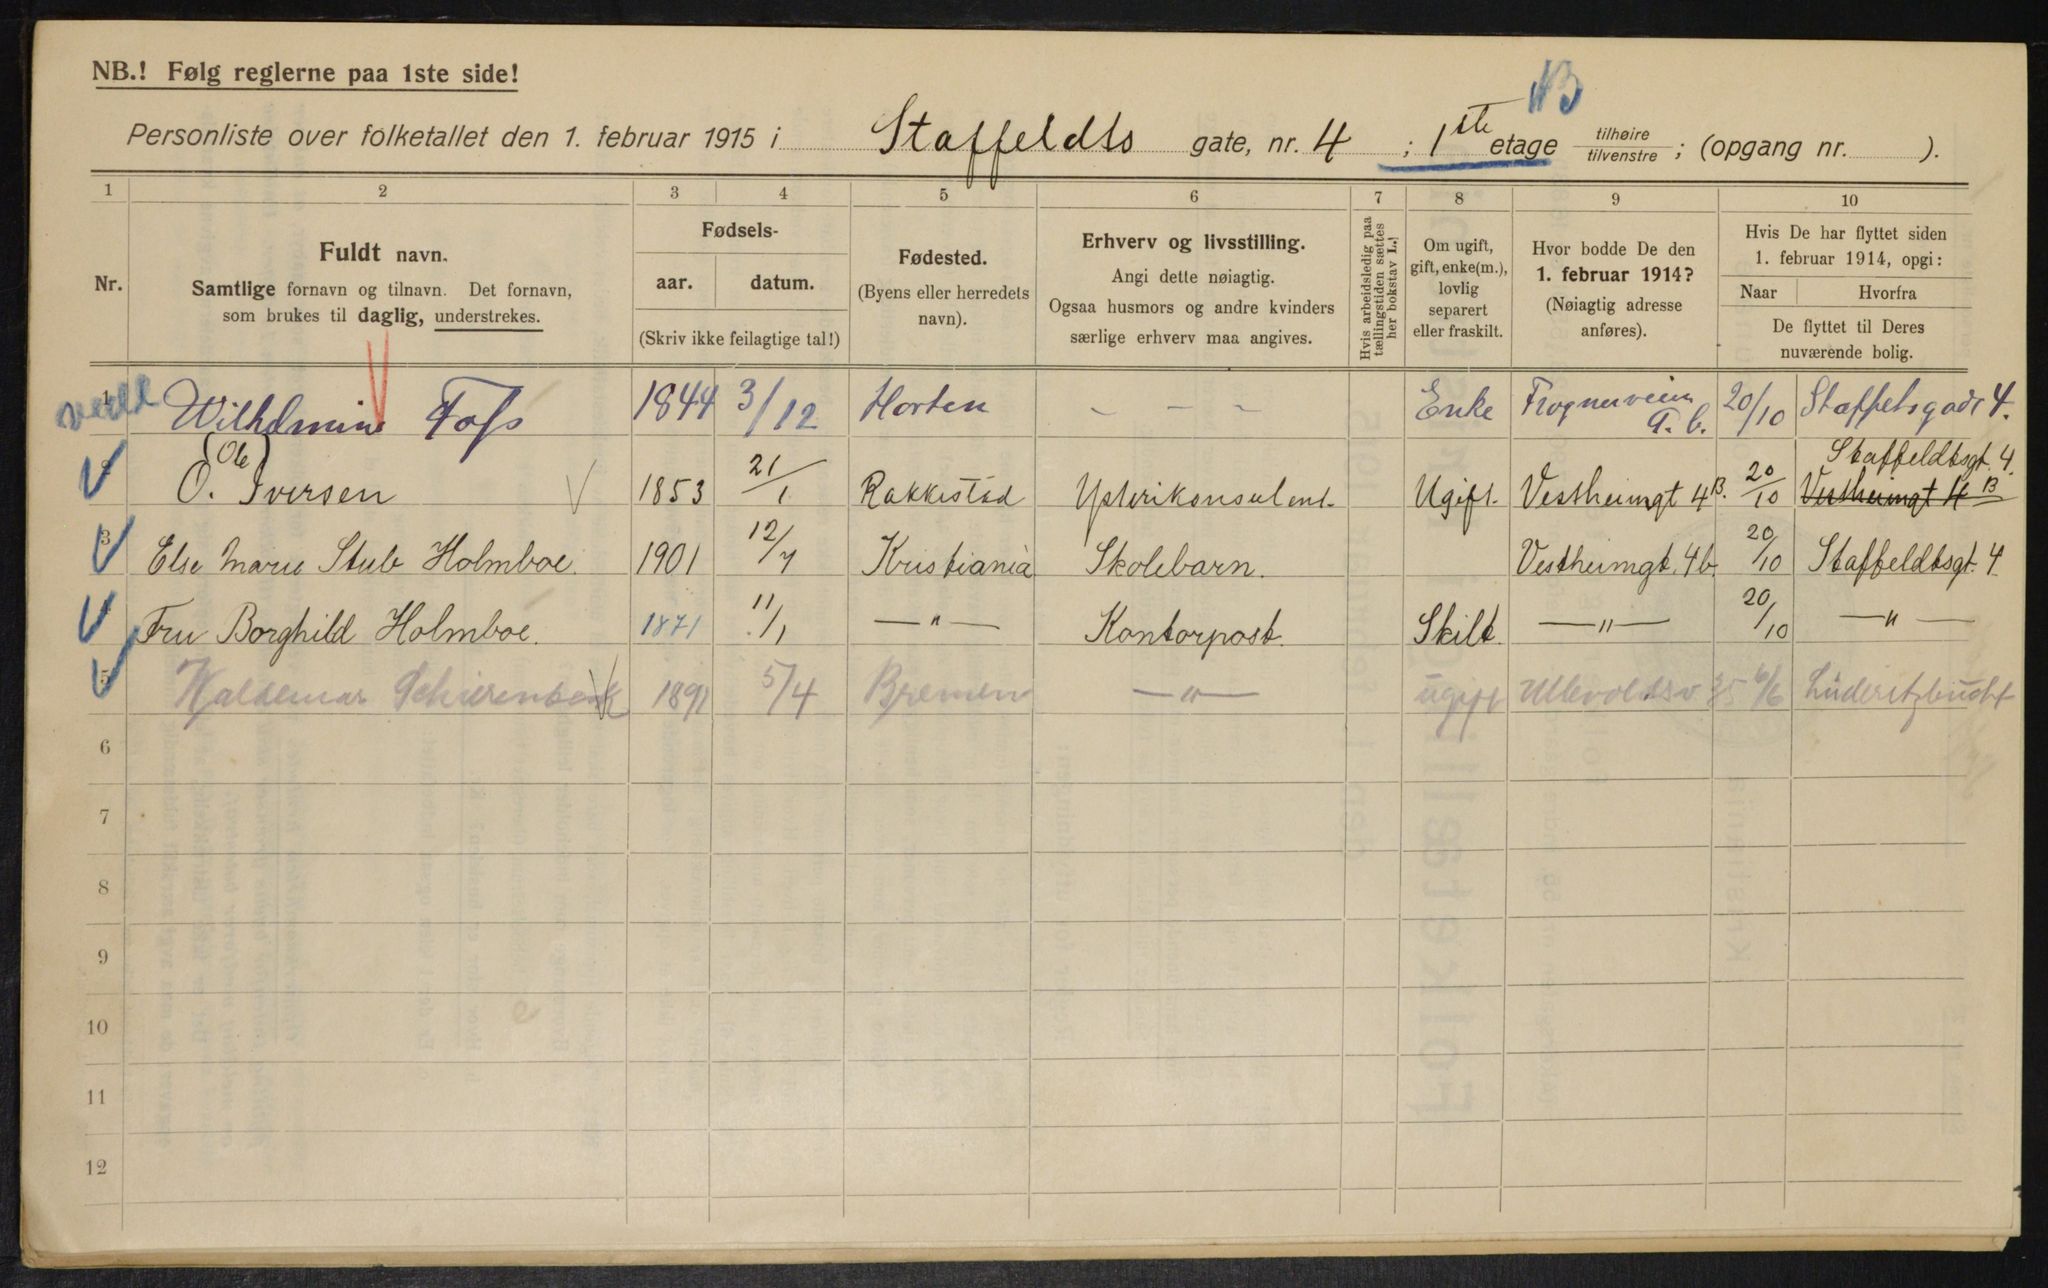 NB.! Følg reglerne paa 1ste side!
NB
Personliste over folketallet den 1. februar 1915 i Staffeldts gate, nr. 4 ; 1ste etage tilhøire / tilvenstre ; (opgang nr. ).
1 2 3 4 5 6 7 8 9 10
Nr.
Fuldt navn.
Samtlige fornavn og tilnavn. Det fornavn,
som brukes til daglig, understrekes.
Fødsels-
aar. datum.
(Skriv ikke feilagtige tal!)
Fødested.
(Byens eller herredets
navn).
Erhverv og livsstilling.
Angi dette nøiagtig.
Ogsaa husmors og andre kvinders
særlige erhverv maa angives.
Hvis arbeidsledig paa
tællingstiden sættes
her bokstav L.!
Om ugift,
gift, enke(m.),
lovlig
separert
eller fraskilt.
Hvor bodde De den
1. februar 1914?
(Nøiagtig adresse
anføres).
Hvis De har flyttet siden
1. februar 1914, opgi:
Naar Hvorfra
De flyttet til Deres
nuværende bolig.
1 Wilhelmine Foss 1844 3/12 Horten - - - Enke Frognerveien 20/10 Staffelsgade 4.
2 (Ole)
O. Iversen 1853 21/1 Rakkestad Ysterikonsulent. Ugift. Vestheimgt 4B. 20/10 Staffeldtsgt. 4.
Vestheimgt 4 B
3 Else Marie Stub Holmboe. 1901 12/7 Kristiania Skolebarn. Vestheimgt. 4b. 20/10 Staffeldtsgt. 4
4 Fru Borghild Holmboe. 1871 11/1 —"— Kontorpost. Skilt. —"— 20/10 —"—
5 Waldemar Schierenbeck 1891 5/4 Bremen —"— ugift Ullevoldsv 35 6/6 Lüderitzbucht
6
7
8
9
10
11
12